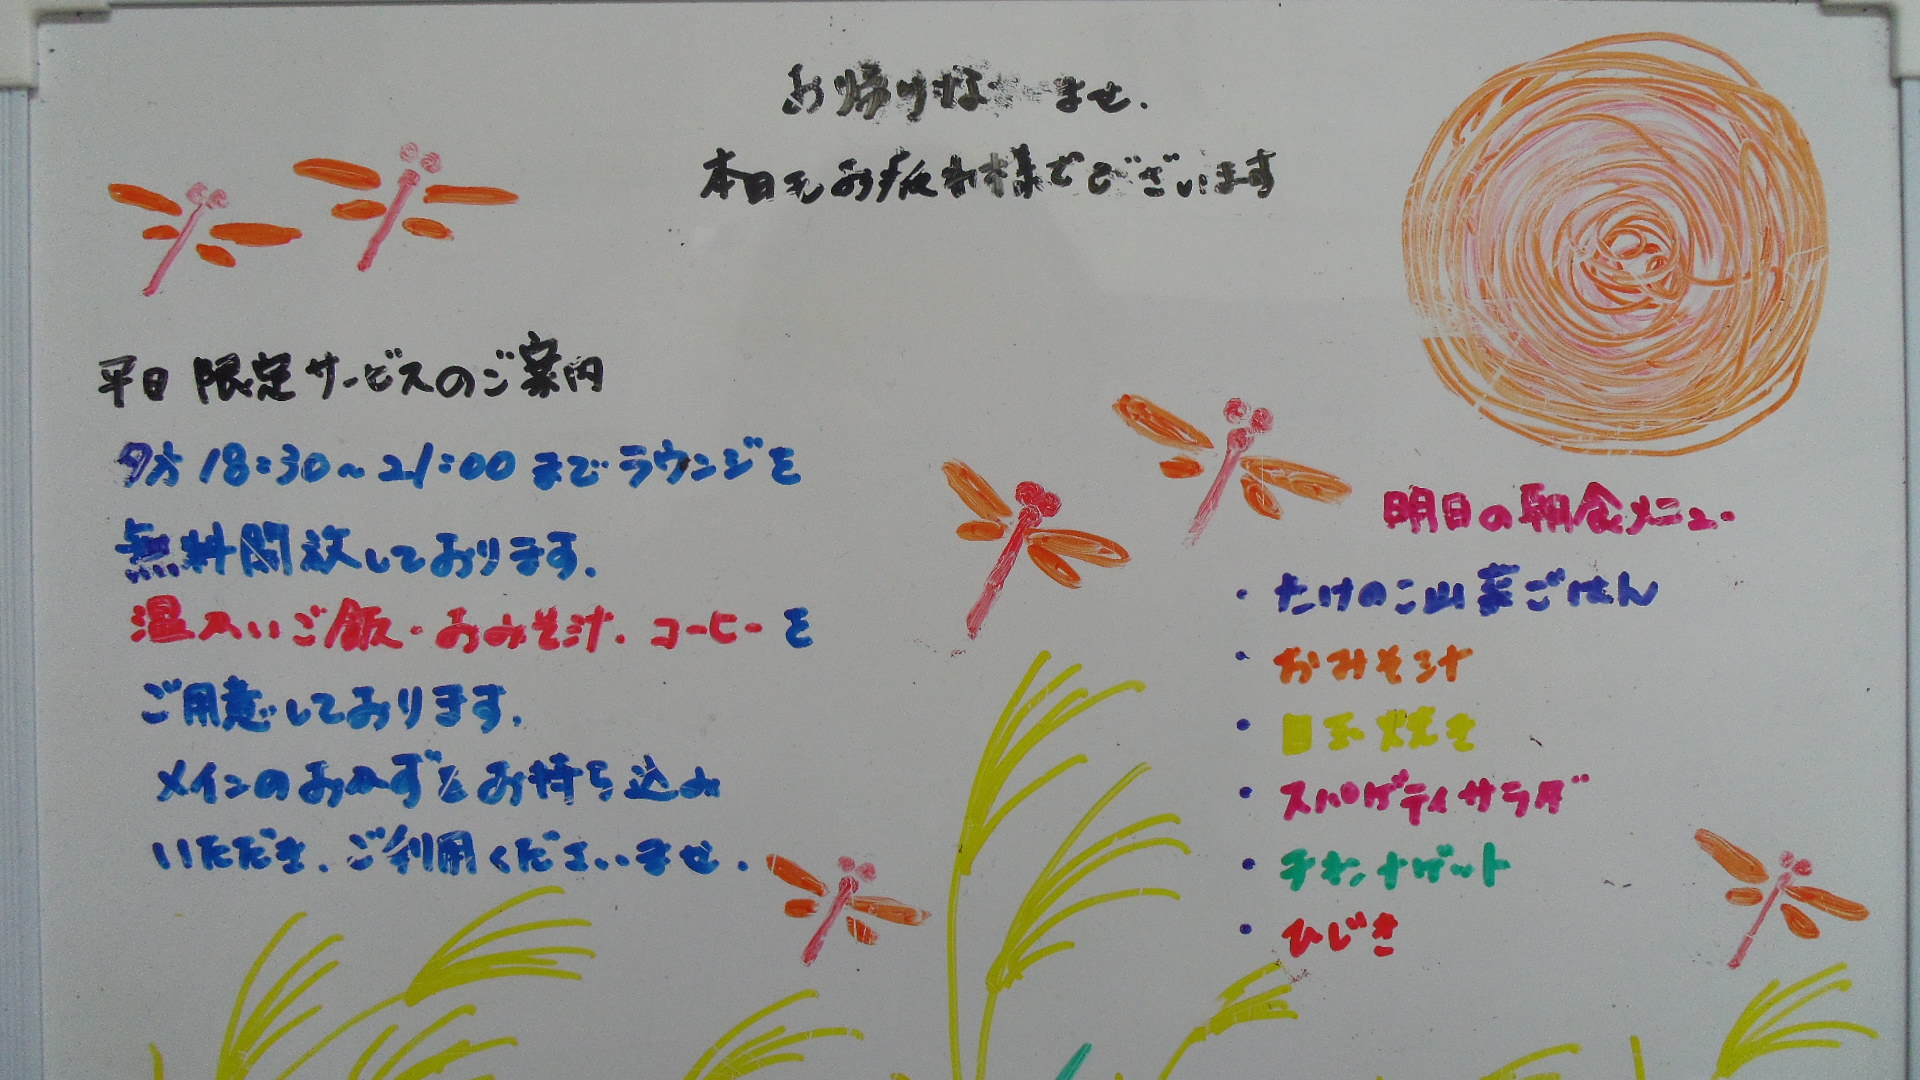 お帰りな ませ.
本日もお疲れ様でございます
平日限定サービスのご案内
夕方18:30~21:00までラウンジを
無料開放しております.
温かいご飯・おみそ汁.コーヒーを
ご用意しております.
メインのおかずをお持ち込み
いただき.ご利用くださいませ.
明日の朝食メニュー
・たけのこ山菜ごはん
・おみそ汁
・目玉焼き
・スパゲティサラダ
・チキンナゲット
・ひじき